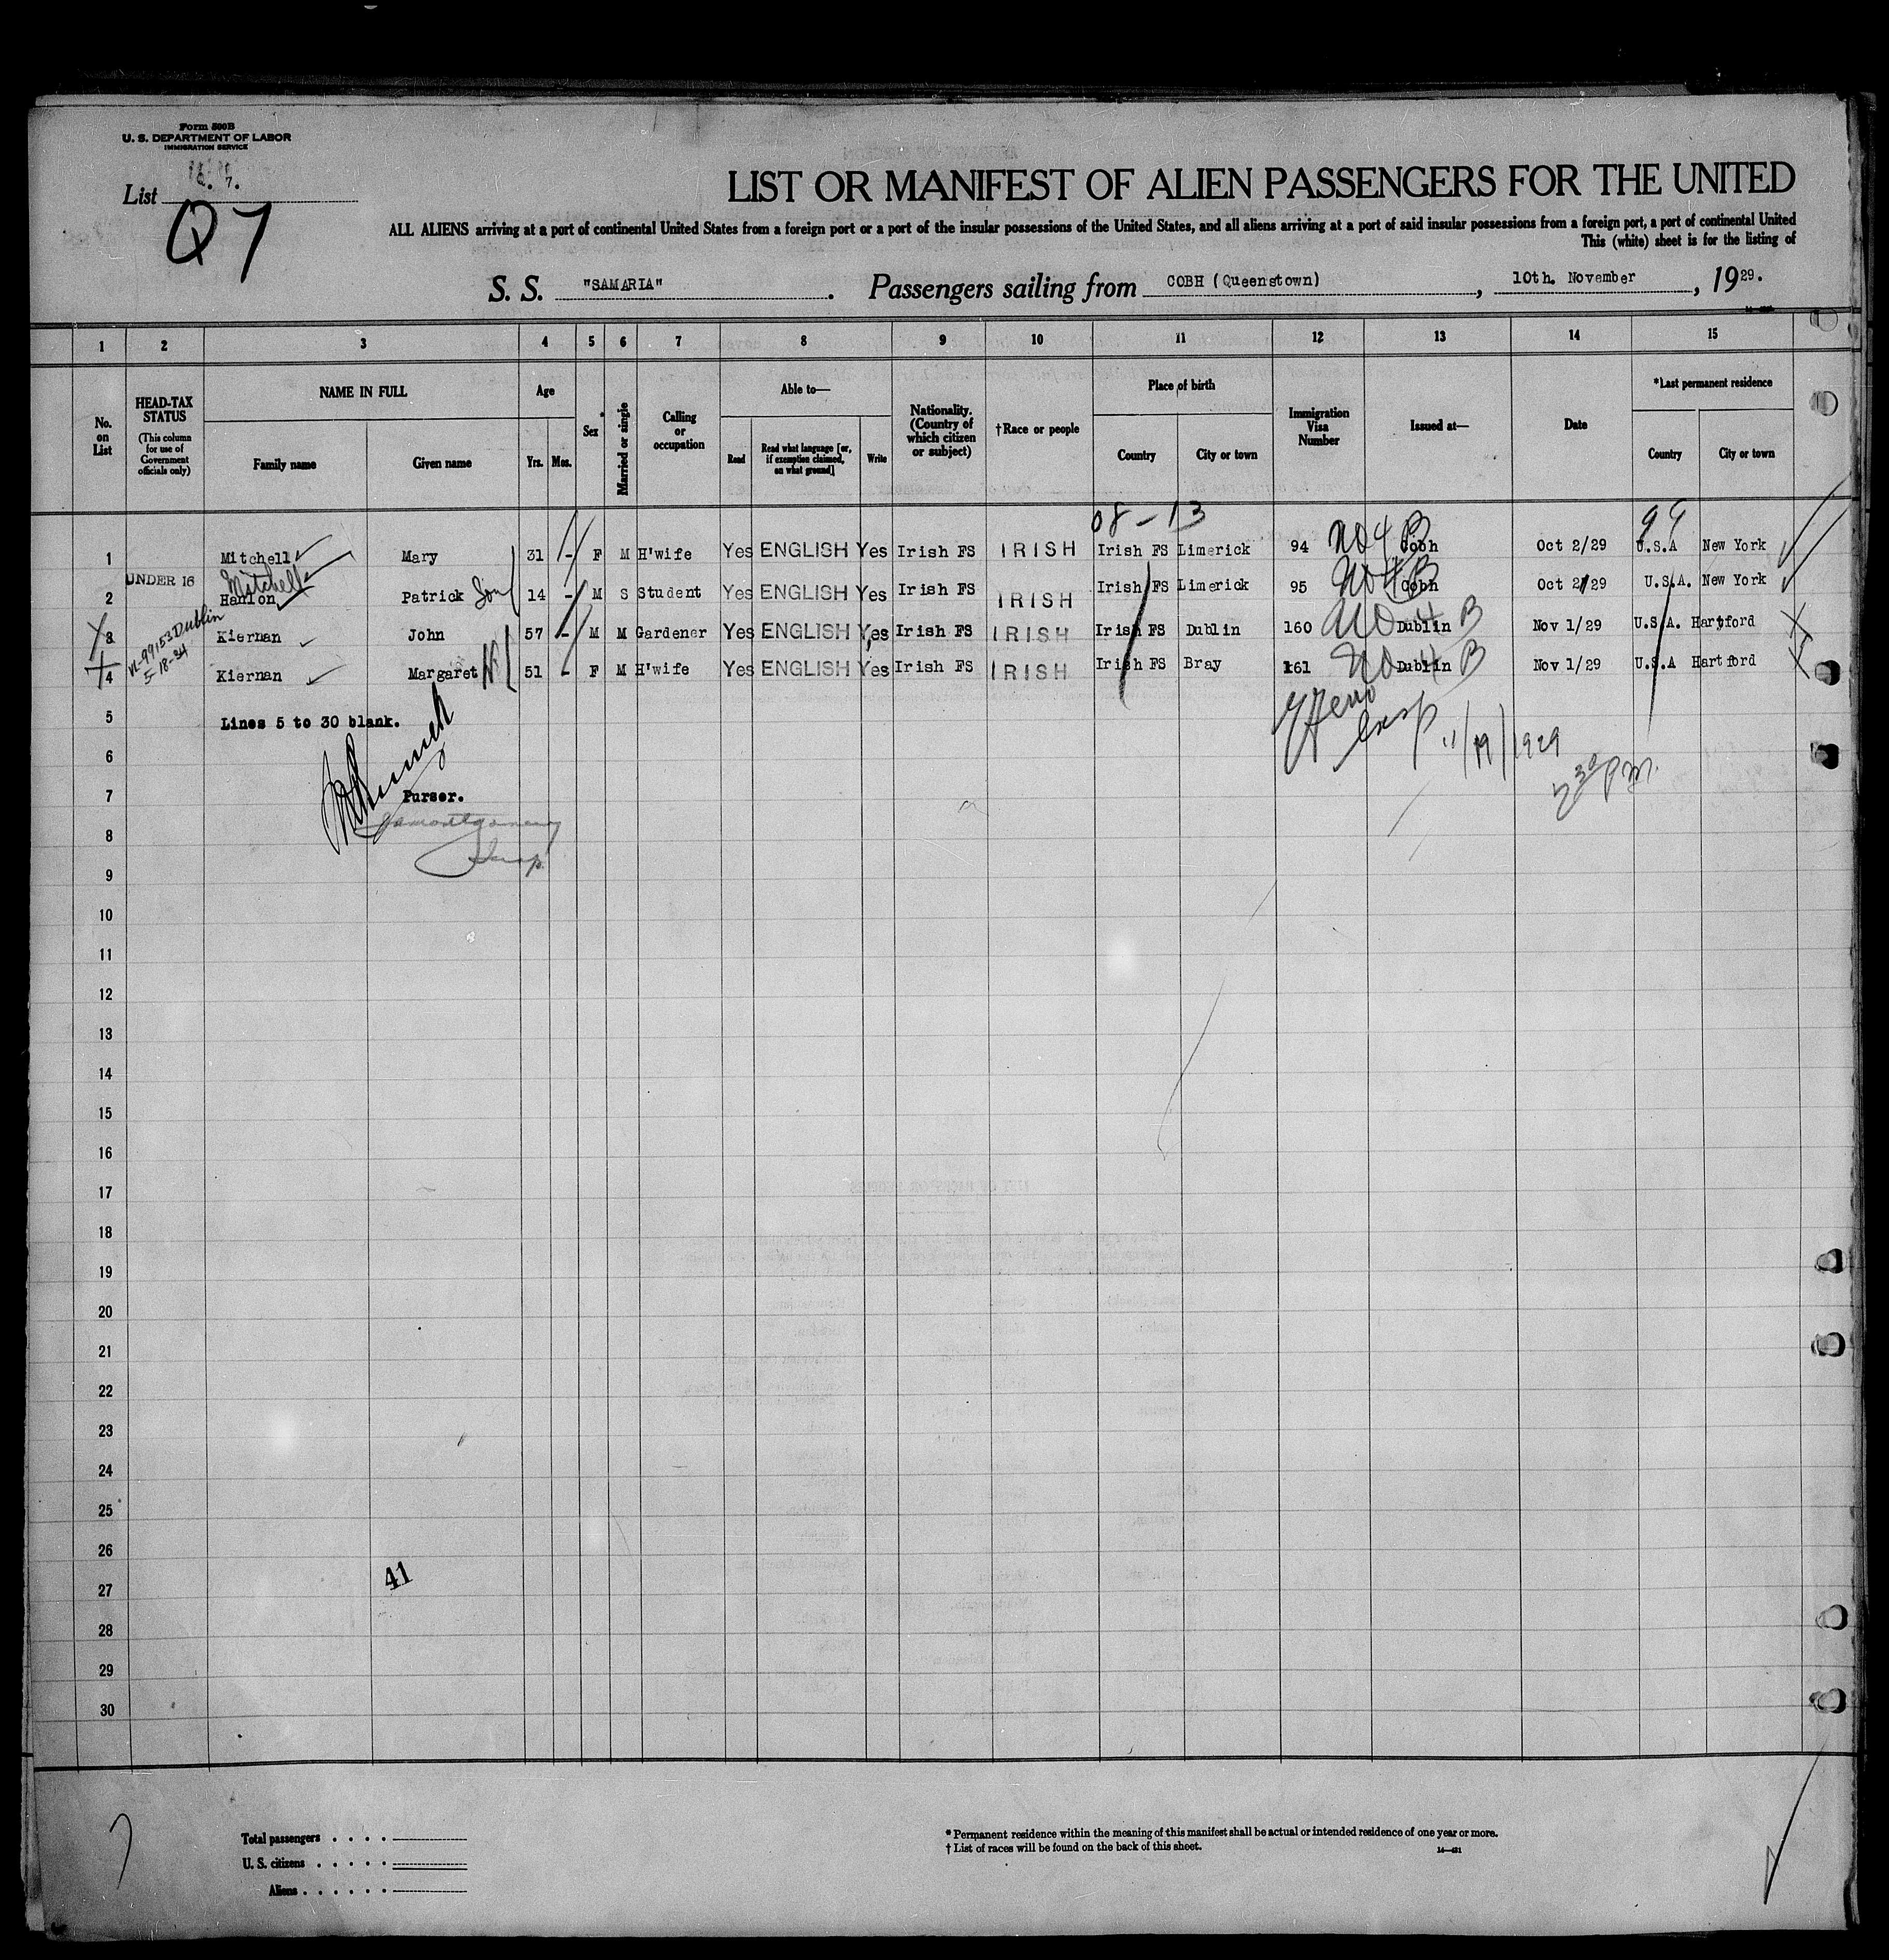 Form 500B
U. S. DEPARTMENT OF LABOR
IMMIGRATION SERVICE
List Q. 7.
Q7
LIST OR MANIFEST OF ALIEN PASSENGERS FOR THE UNITED
ALL ALIENS arriving at a port of continental United States from a foreign port or a port of the insular possessions of the United States, and all aliens arriving at a port of said insular possessions from a foreign port, a port of continental United
This (white) sheet is for the listing of
S. S. "SAMARIA". Passengers sailing from COBH (Queenstown), 10th. November, 1929.
1 2 3 4 5 6 7 8 9 10 11 12 13 14 15
No. on List
HEAD-TAX STATUS (This column for use of Government officials only)
NAME IN FULL
Family name
Given name
Age
Yrs. Mos.
Sex
Married or single
Calling or occupation
Able to—
Read
Read what language [or, if exemption claimed, on what ground]
Write
Nationality. (Country of which citizen or subject)
†Race or people
Place of birth
Country
City or town
Immigration Visa Number
Issued at—
Date
*Last permanent residence
Country
City or town
08-13 99
1 Mitchell Mary 31 - F M H'wife Yes ENGLISH Yes Irish FS IRISH Irish FS Limerick 94 NO 4 B Cobh Oct 2/29 U.S.A New York
UNDER 16 Mitchell
2 Hanlon Patrick Son 14 - M S Student Yes ENGLISH Yes Irish FS IRISH Irish FS Limerick 95 NO 4 B Cobh Oct 2/29 U.S.A. New York
VL-99153 Dublin
5-18-34
3 Kiernan John 57 - M M Gardener Yes ENGLISH Yes Irish FS IRISH Irish FS Dublin 160 NO 4 B Dublin Nov 1/29 U.S.A. Hartford
4 Kiernan Margaret 51 - F M H'wife Yes ENGLISH Yes Irish FS IRISH Irish FS Bray 161 NO 4 B Dublin Nov 1/29 U.S.A Hartford
5 Lines 5 to 30 blank.
Insp 11/19/1929
2 30 P.M.
6
7 Purser.
8 Montgomery
Insp.
9
10
11
12
13
14
15
16
17
18
19
20
21
22
23
24
25
26
27 41
28
29
30
Total passengers . . . .
U. S. citizens . . . . .
Aliens . . . . . .
* Permanent residence within the meaning of this manifest shall be actual or intended residence of one year or more.
† List of races will be found on the back of this sheet.
14—431